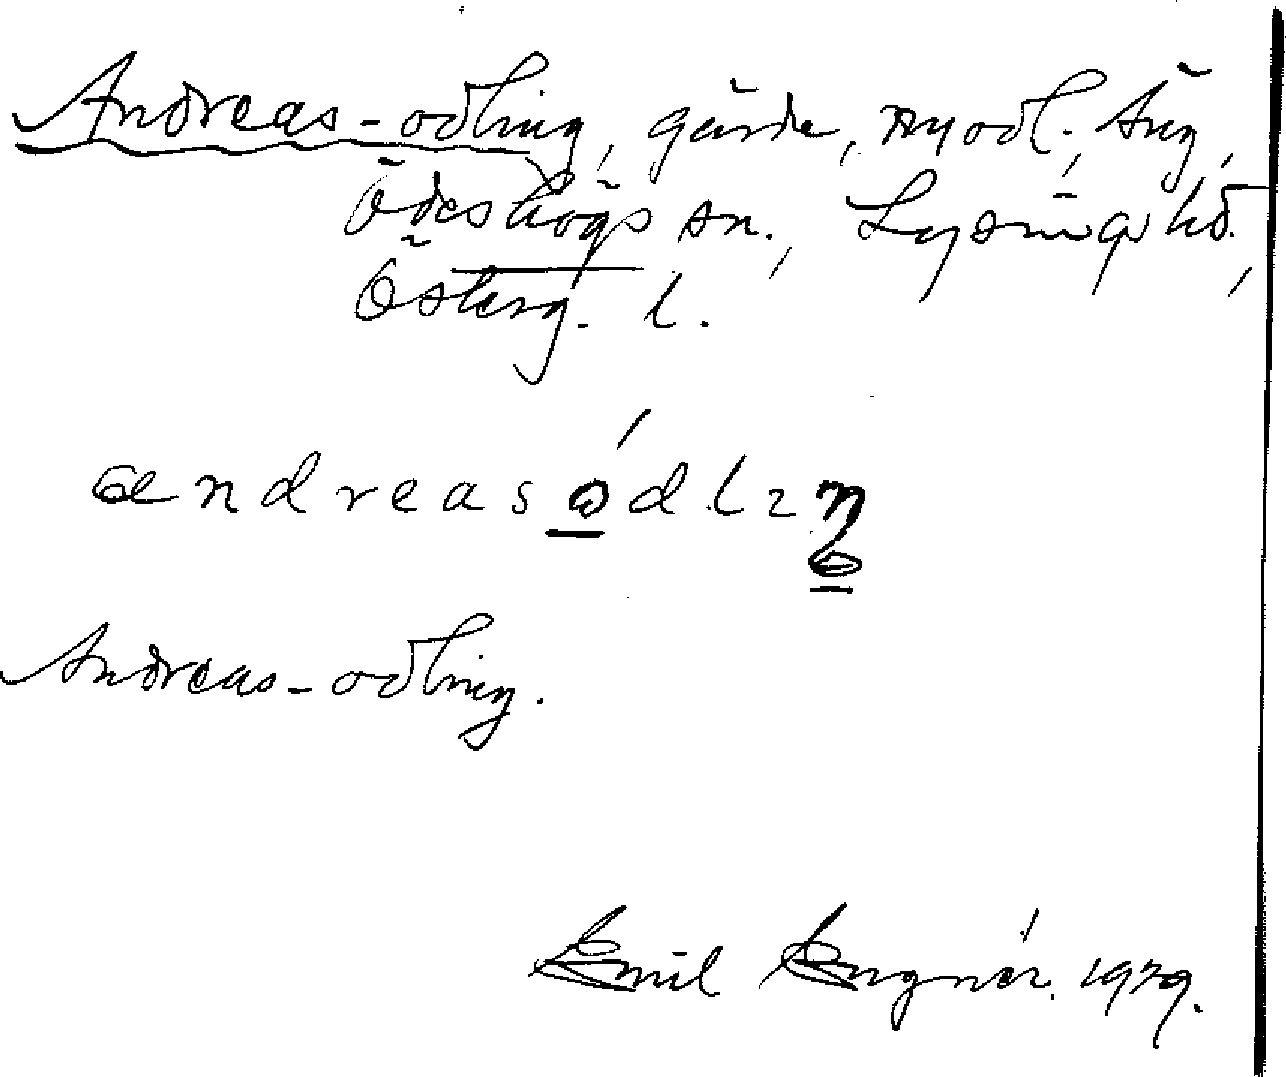 Andreas-odling, gärde, nyodl., Äng,
Ödeshögs sn., Lysings hd.,
Österg. l.
andreasódlıŋ
Andreas-odling.
Emil Engnér. 1929.